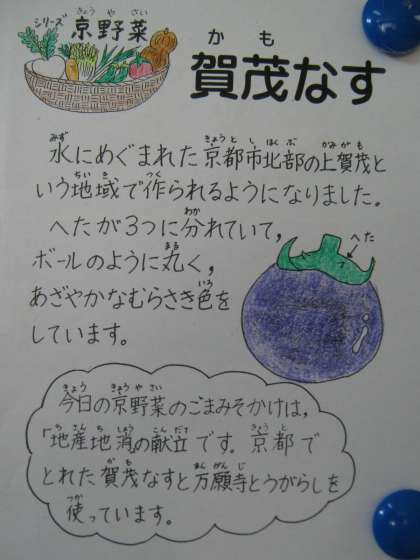 シリーズ 京野菜
賀茂なす
水にめぐまれた京都市北部の上賀茂と
いう地域で作られるようになりました。
へたが3つに分れていて，
ボールのように丸く，
あざやかなむらさき色を
しています。
へた
今日の京野菜のごまみそかけは，
「地産地消」の献立です。京都で
とれた賀茂なすと万願寺とうがらしを
使っています。